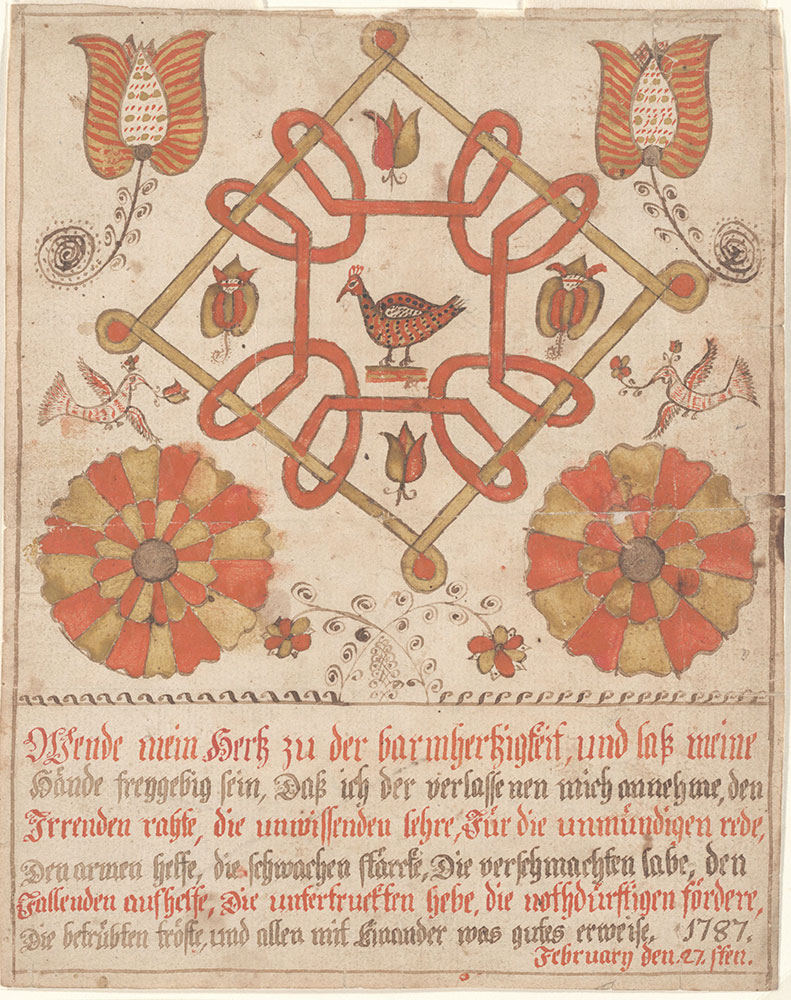 Wende mein Hertz zu der barmhertzigkeit, und laß meine
Hände freygebig sein, Daß ich der verlassenen mich annehme, den
Irrenden rahte, die unwissenden lehre, Für die unmündigen rede,
Den armen helfe, die schwachen stärcke, Die verschmachten labe, den
Fallenden aufhelfe, Die untertruckten hebe, die nothdürftigen fördere,
Die betrübten tröste, und allen mit Einander was gutes erweise, 1787.
February den 27.sten.